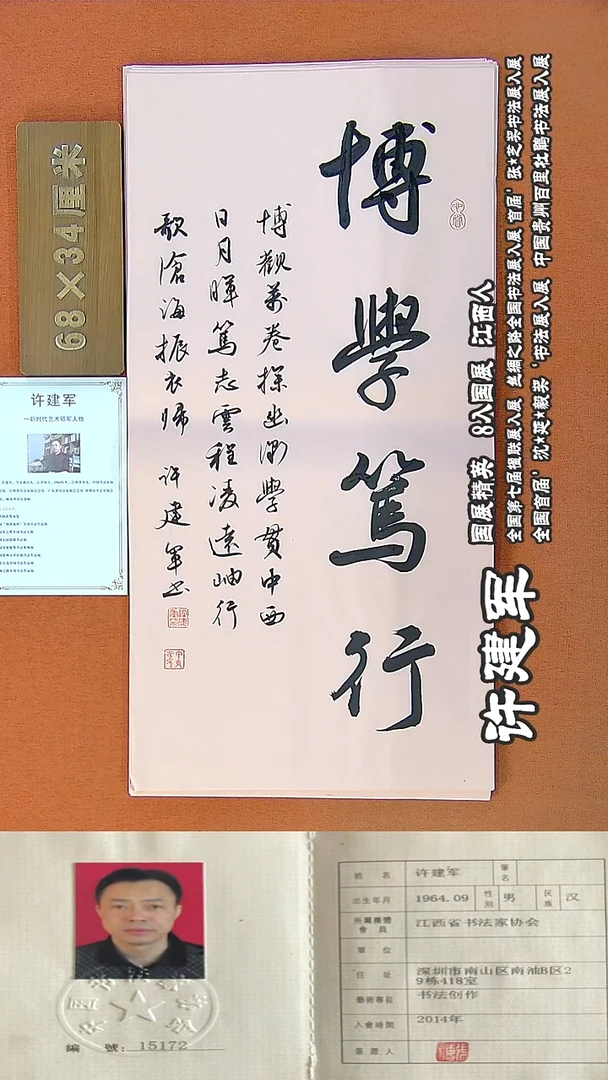 68×34厘米
博學篤行
博觀萬卷探幽深學貫中西
日月暉篤志雲程凌遠岫行
歌滄海振衣歸 许建军书
许建军
国展精英 8入国展 江西人
全国第七届楹联展入展 丝绸之路全国书法展入展
首届'张*芝奖书法展入展
全国首届'沈*延*毅奖'书法展入展 中国贵州百里杜鹃书法展入展
许建军
一新时代艺术领军人物
姓名 许建军 署名
出生年月 1964.09 性别 男 民族 汉
所屬團體會員 江西省书法家协会
單位
住址 深圳市南山区南油B区2
9栋418室
藝術專長 书法创作
入會時間 2014年
簽證人
編號：15172